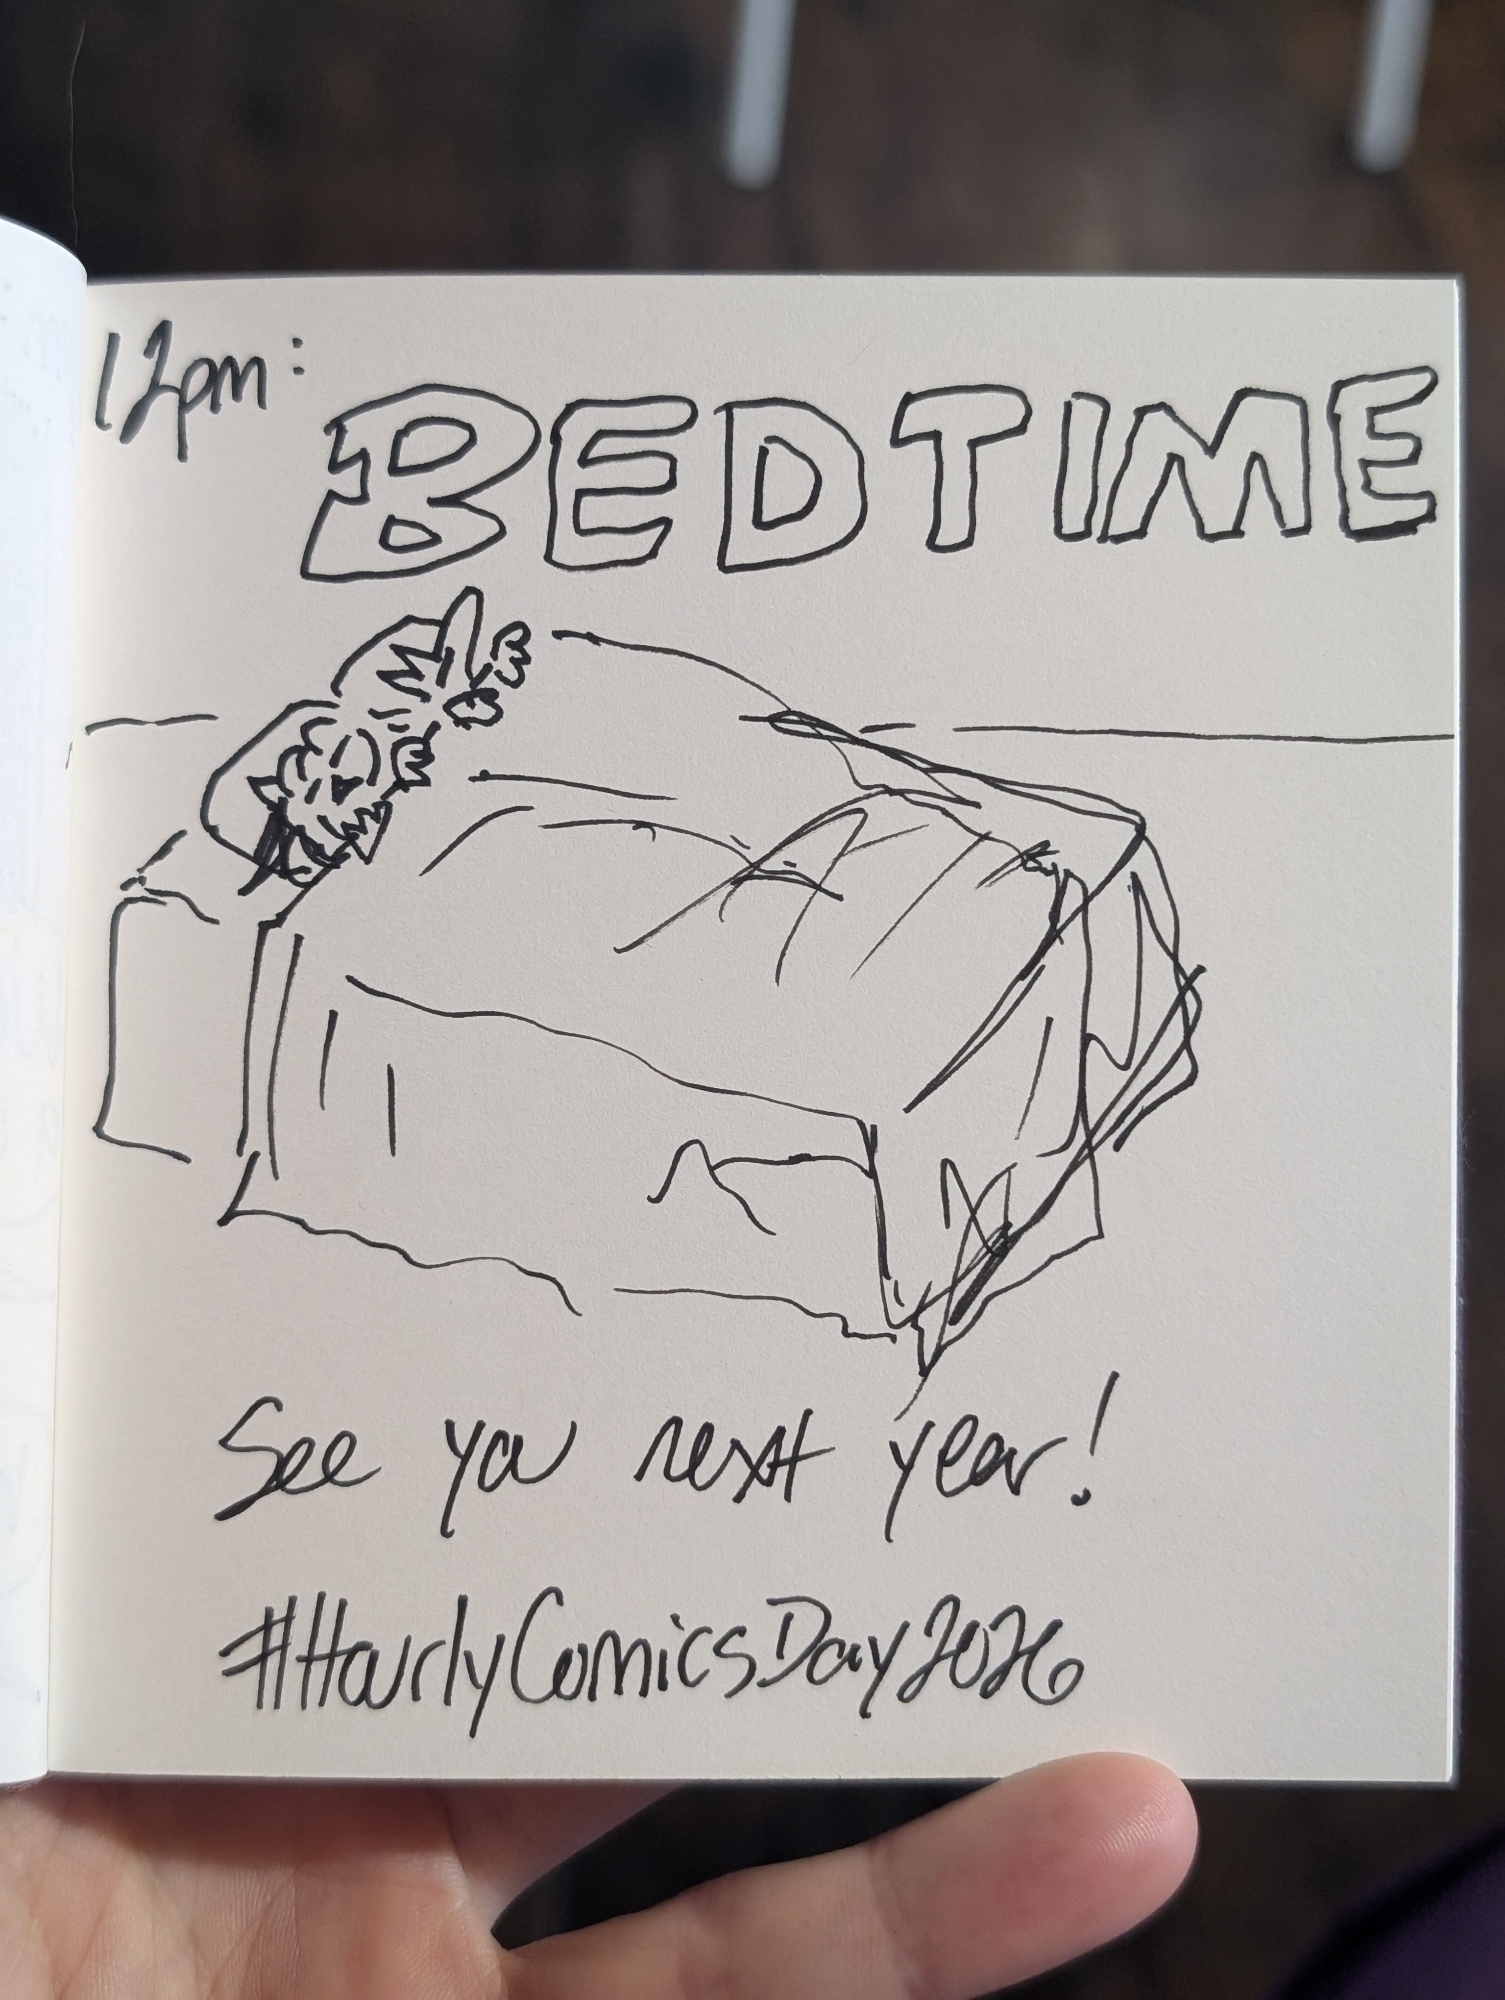 12pm:
BEDTIME
See you next year!
#HourlyComicsDay2026